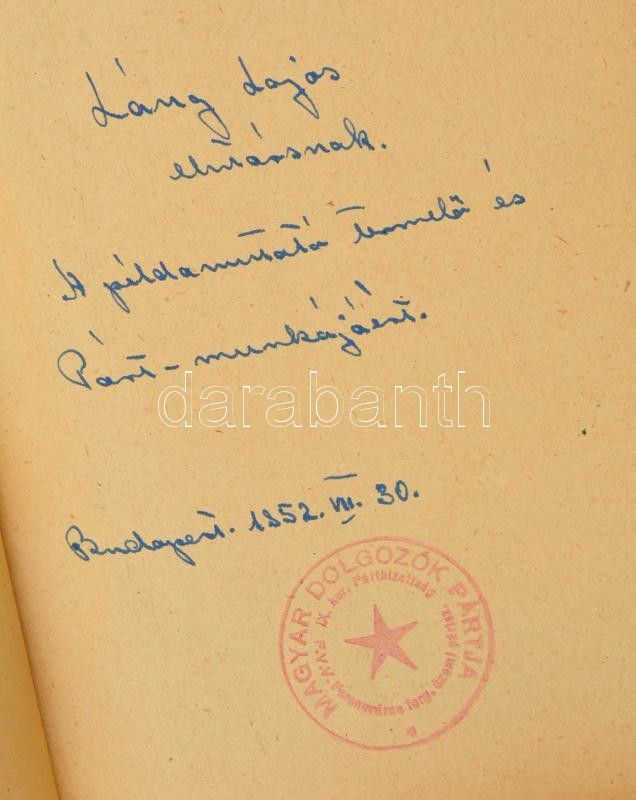 Láng Lajos
elvtársnak.
A példamutató termelő és
Párt-munkájáért.
darabanth
Budapest. 1952. VII. 30.
MAGYAR DOLGOZÓK PÁRTJA
IX. ker. Pártbizottság
F.V.V. Ferencváros forg. üzemi pártsz.